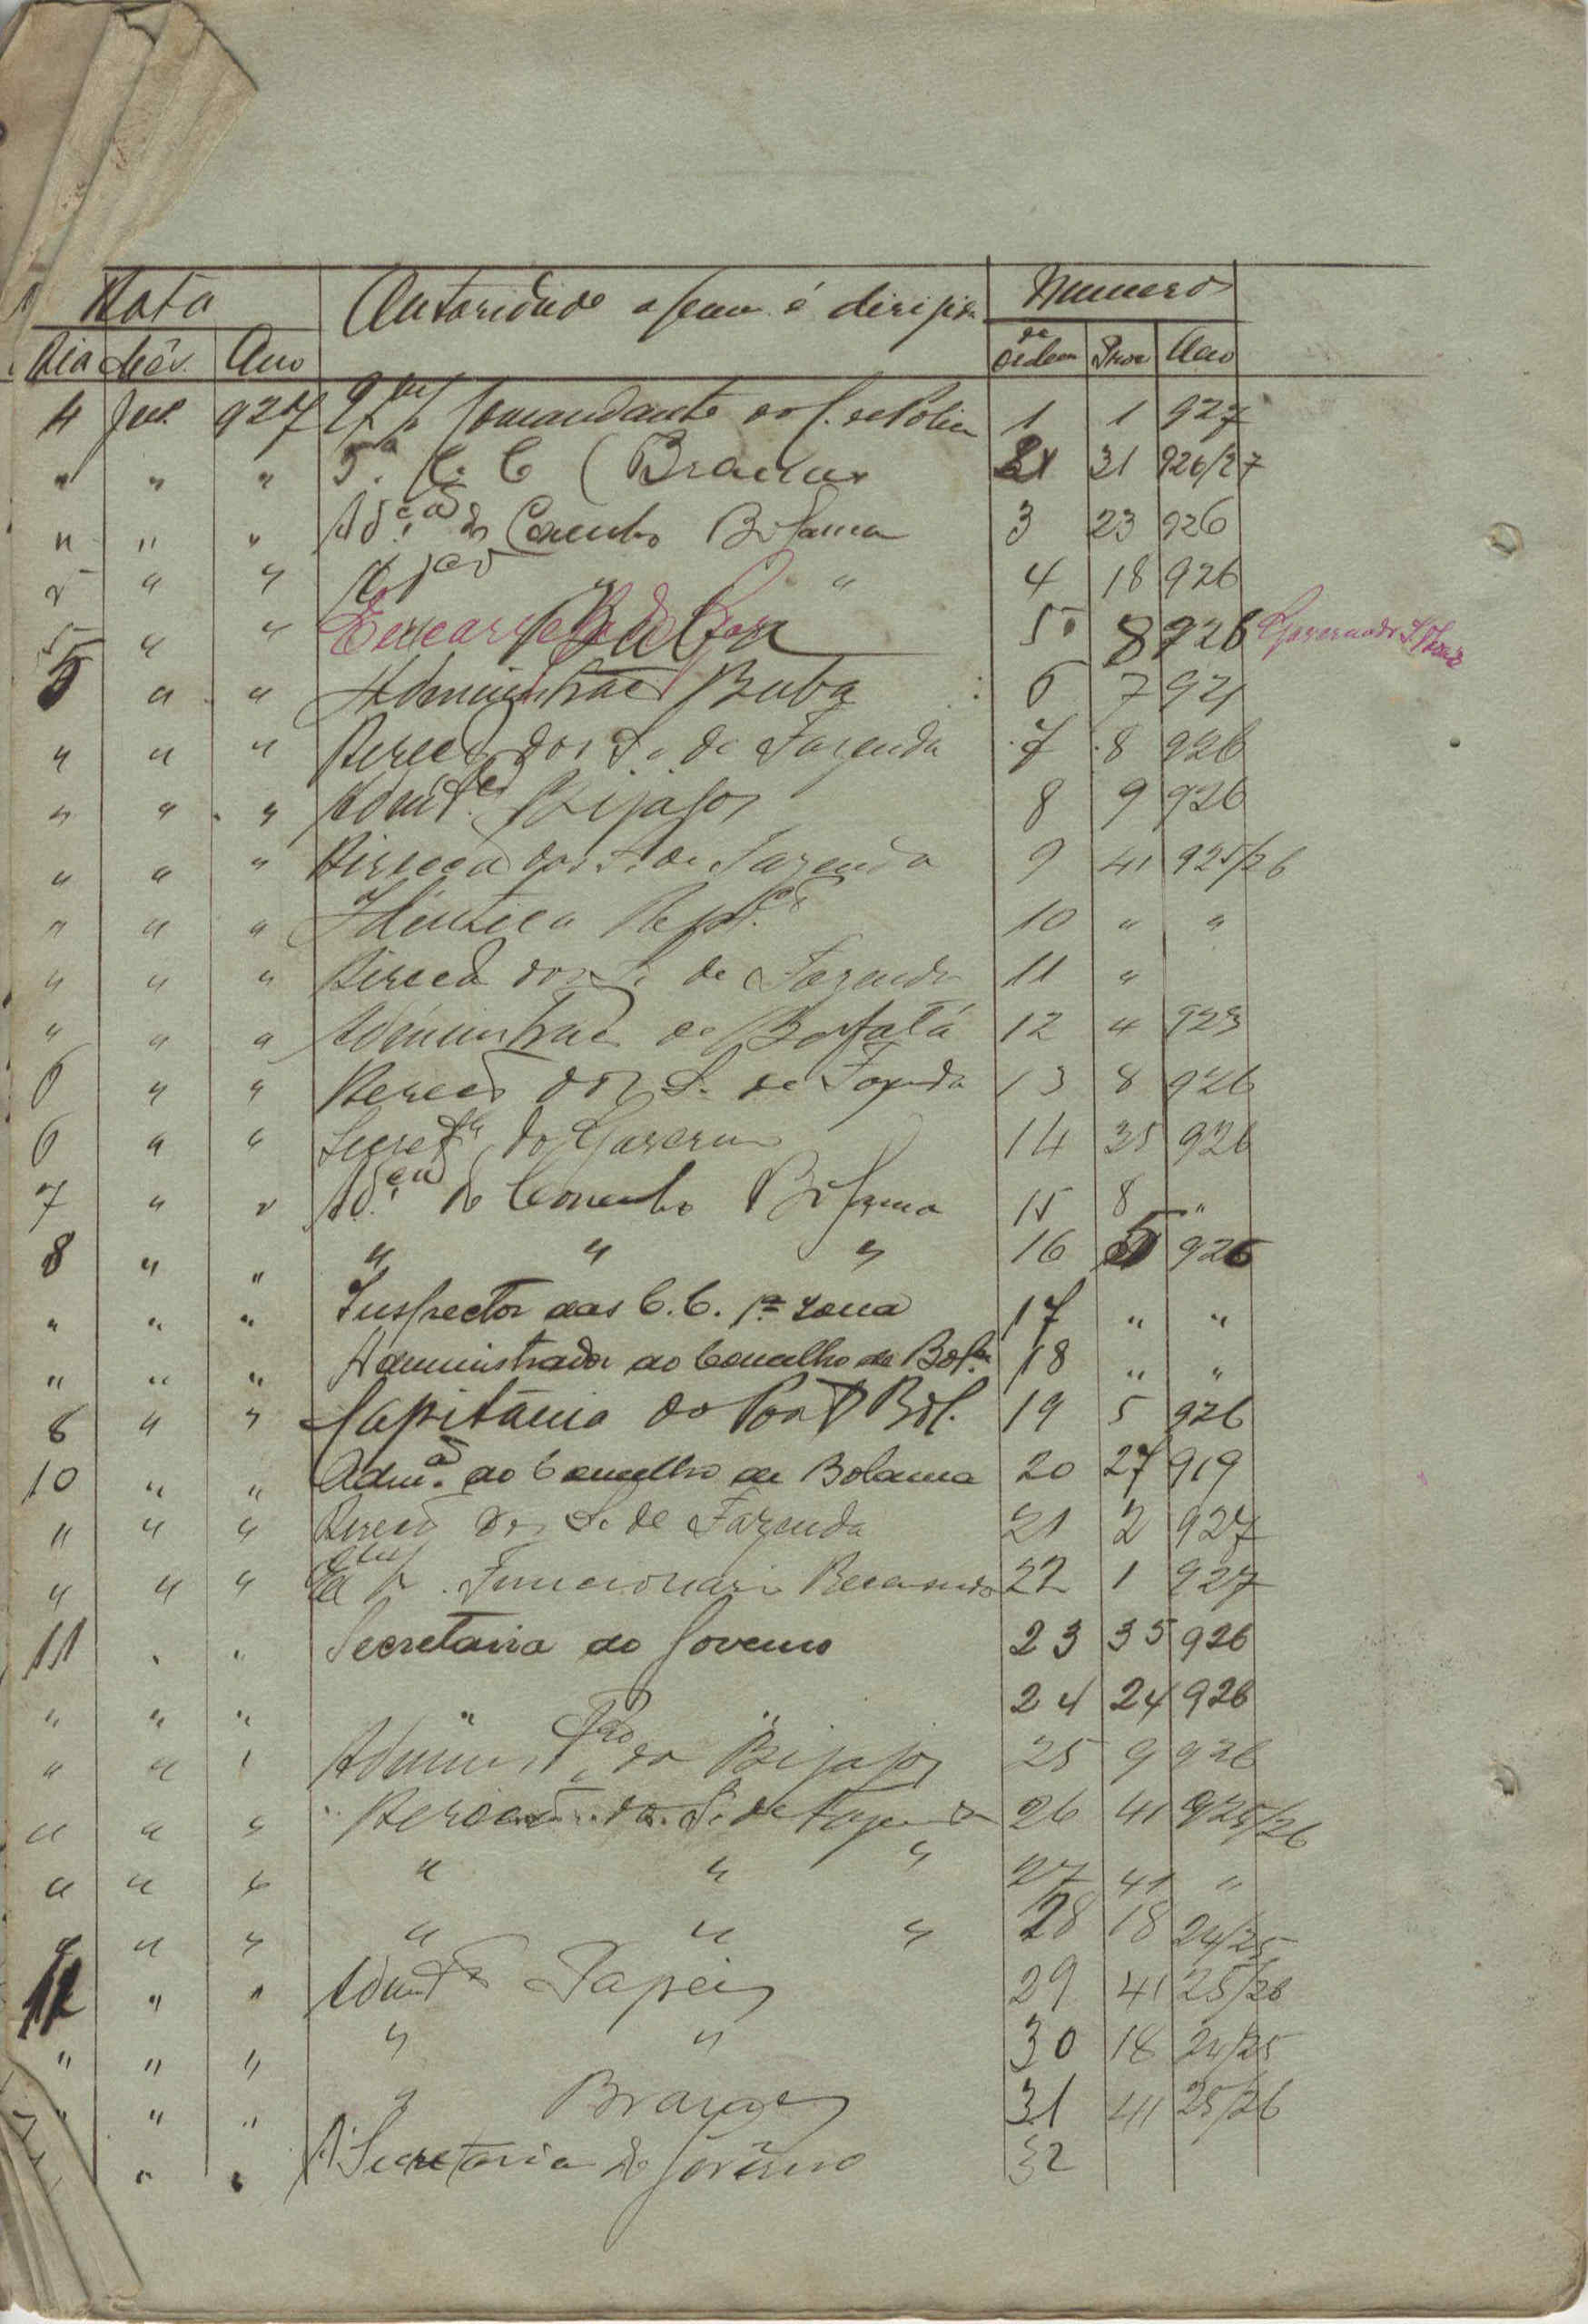 Data Autoridade a quem é dirigida Numero
Dia Mês Ano de Ordem Proc Ano
4 Jul. 927 Comandante do C. de Policia 1 1 927
" " " 5.ª C. C (Brames 31 926/27
" " " Ad.ção do Concelho Bolama 3 23 926
5 " " " " 4 18 926
5 " " 5 8 926 Governador
5 " " Administração Buba 6 7 921
" " " Direcção dos S. de Fazenda 7 8 926
" " " Admi. Bijagos 8 9 926
" " " Direcção dos S. de Fazenda 9 41 925/26
" " " Identica Rep.ção 10 " "
" " " Direcção dos S. de Fazenda 11 "
" " " Administração de Bafatá 12 4 923
6 " " Direcção dos S. de Fazenda 13 8 926
6 " " Secret.ª do Governo 14 35 926
7 " " Ad.ção do Concelho Bolama 15 8 "
8 " " " " " 16 5 926
" " " Inspector das C. C. 1ª zona 17 " "
" " " Administrador do Concelho de Bol.ª 18 " "
8 " " Capitania do Porto Bol. 19 5 926
10 " " Adm.or do Concelho de Bolama 20 27 919
" " " Direcção dos S. de Fazenda 21 2 927
" " " Funcionario 22 1 927
11 " " Secretaria do Governo 23 35 926
" " " " " 24 24 926
" " " Administ.ção do Bijagos 25 9 926
" " " Direcção dos S. de Fazenda 26 41 925/26
" " " " " " 27 41 "
" " " " " " 28 18 24/25
12 " " Admi. Papeis 29 41 25/26
" " " " " 30 18 24/25
" " " " Brames 31 41 25/26
" " Á Secretaria do Govêrno 32